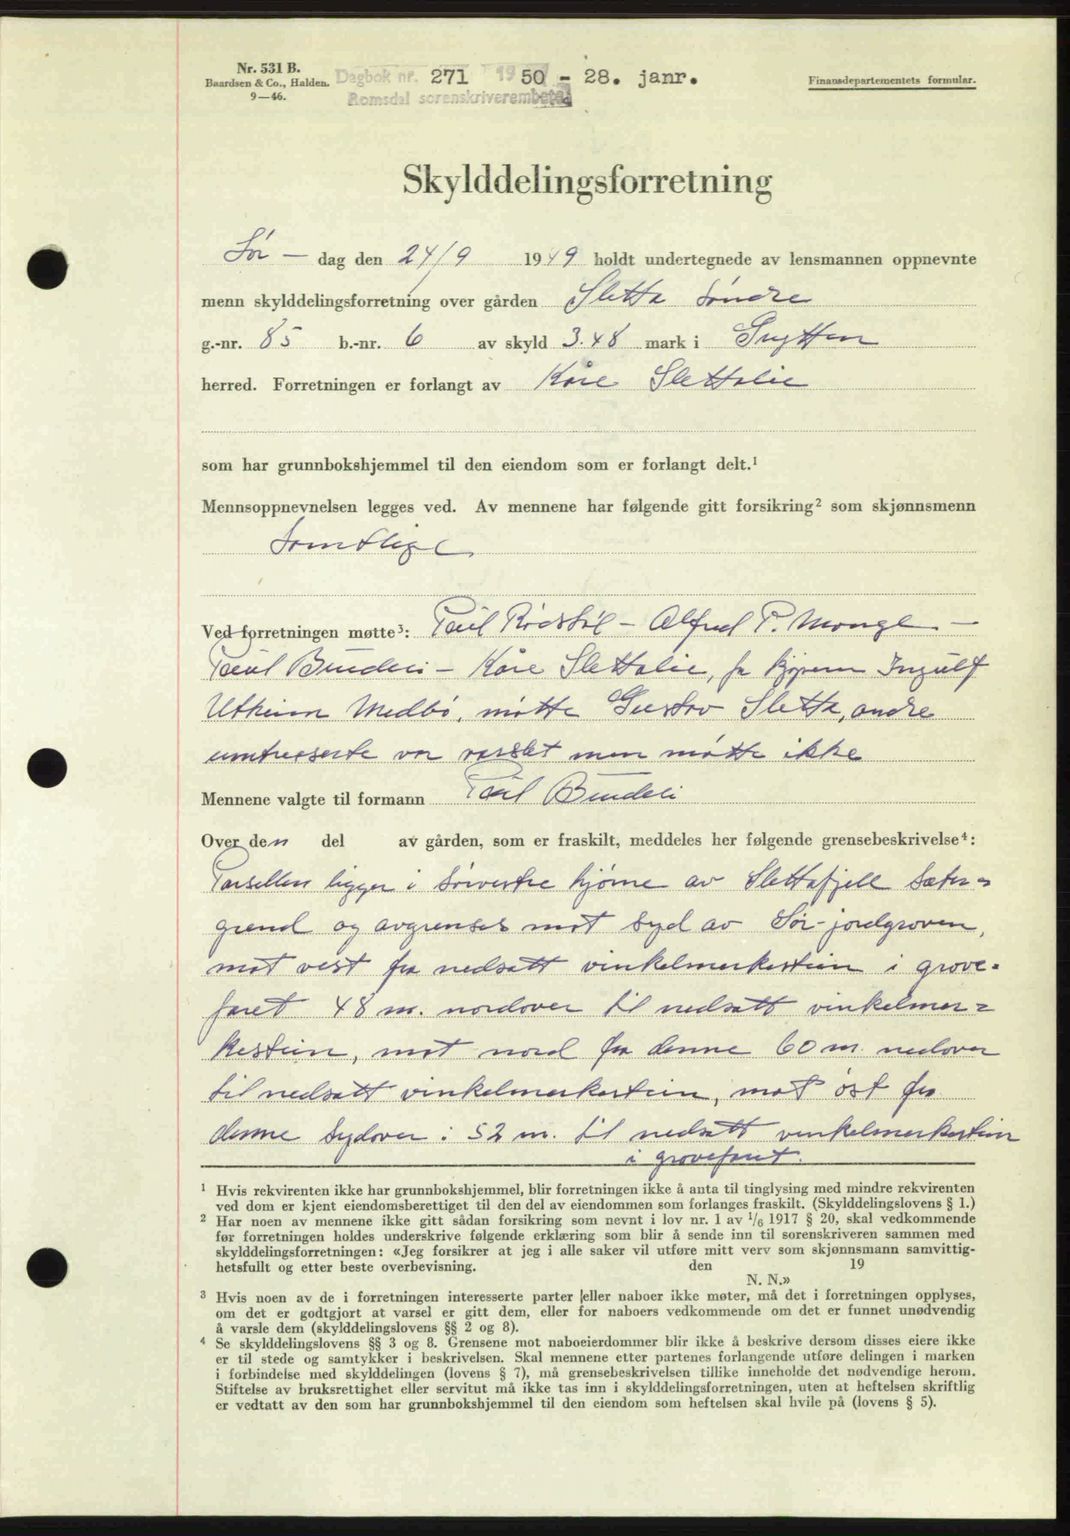 Nr. 531 B.
Baardsen & Co., Halden.
9—46.
Dagbok nr. 271 1950 - 28. janr.
Romsdal sorenskriverembete
Finansdepartementets formular.
Skylddelingsforretning
Lør — dag den 24/9 1949 holdt undertegnede av lensmannen oppnevnte
menn skylddelingsforretning over gården Sletta søndre
g.-nr. 85 b.-nr. 6 av skyld 3.48 mark i Grytten
herred. Forretningen er forlangt av Kåre Slettalie
som har grunnbokshjemmel til den eiendom som er forlangt delt.¹
Mennsoppnevnelsen legges ved. Av mennene har følgende gitt forsikring² som skjønnsmenn
Samtlige
Ved forretningen møtte³: Paul Rødstøl — Alfred P. Monge. —
Paul Brudeli — Kåre Slettalie, for kjøperen Ingulf
Utheim Medbø, møtte Gustav Sletta, andre
interesserte var varslet men møtte ikke
Mennene valgte til formann Paul Brudeli
Over den del av gården, som er fraskilt, meddeles her følgende grensebeskrivelse⁴:
Parsellen ligger i sørvestre hjørne av Slettafjell sæter=
grend og avgrenses mot syd av Sør-jordgroven,
mot vest fra nedsatt vinkelmerkestein i grove=
faret 48 m. nordover til nedsatt vinkelmer=
kestein, mot nord fra denne 60 m. nedover
til nedsatt vinkelmerkestein, mot øst fra
denne sydover i 52 m. til nedsatt vinkelmerkestein
i grovefaret.
¹ Hvis rekvirenten ikke har grunnbokshjemmel, blir forretningen ikke å anta til tinglysing med mindre rekvirenten
ved dom er kjent eiendomsberettiget til den del av eiendommen som forlanges fraskilt. (Skylddelingslovens § 1.)
² Har noen av mennene ikke gitt sådan forsikring som nevnt i lov nr. 1 av 1/6 1917 § 20, skal vedkommende
før forretningen holdes underskrive følgende erklæring som blir å sende inn til sorenskriveren sammen med
skylddelingsforretningen: «Jeg forsikrer at jeg i alle saker vil utføre mitt verv som skjønnsmann samvittig-
hetsfullt og etter beste overbevisning. den 19
N. N.»
³ Hvis noen av de i forretningen interesserte parter eller naboer ikke møter, må det i forretningen opplyses,
om det er godtgjort at varsel er gitt dem, eller for naboers vedkommende om det er funnet unødvendig
å varsle dem (skylddelingslovens §§ 2 og 8).
⁴ Se skylddelingslovens §§ 3 og 8. Grensene mot naboeierdommer blir ikke å beskrive dersom disses eiere ikke
er til stede og samtykker i beskrivelsen. Skal mennene etter partenes forlangende utføre delingen i marken
i forbindelse med skylddelingen (lovens § 7), må grensebeskrivelsen tillike inneholde det nødvendige herom.
Stiftelse av bruksrettighet eller servitut må ikke tas inn i skylddelingsforretningen, uten at heftelsen skriftlig
er vedtatt av den som har grunnbokshjemmel til den eiendom som heftelsen skal hvile på (lovens § 5).